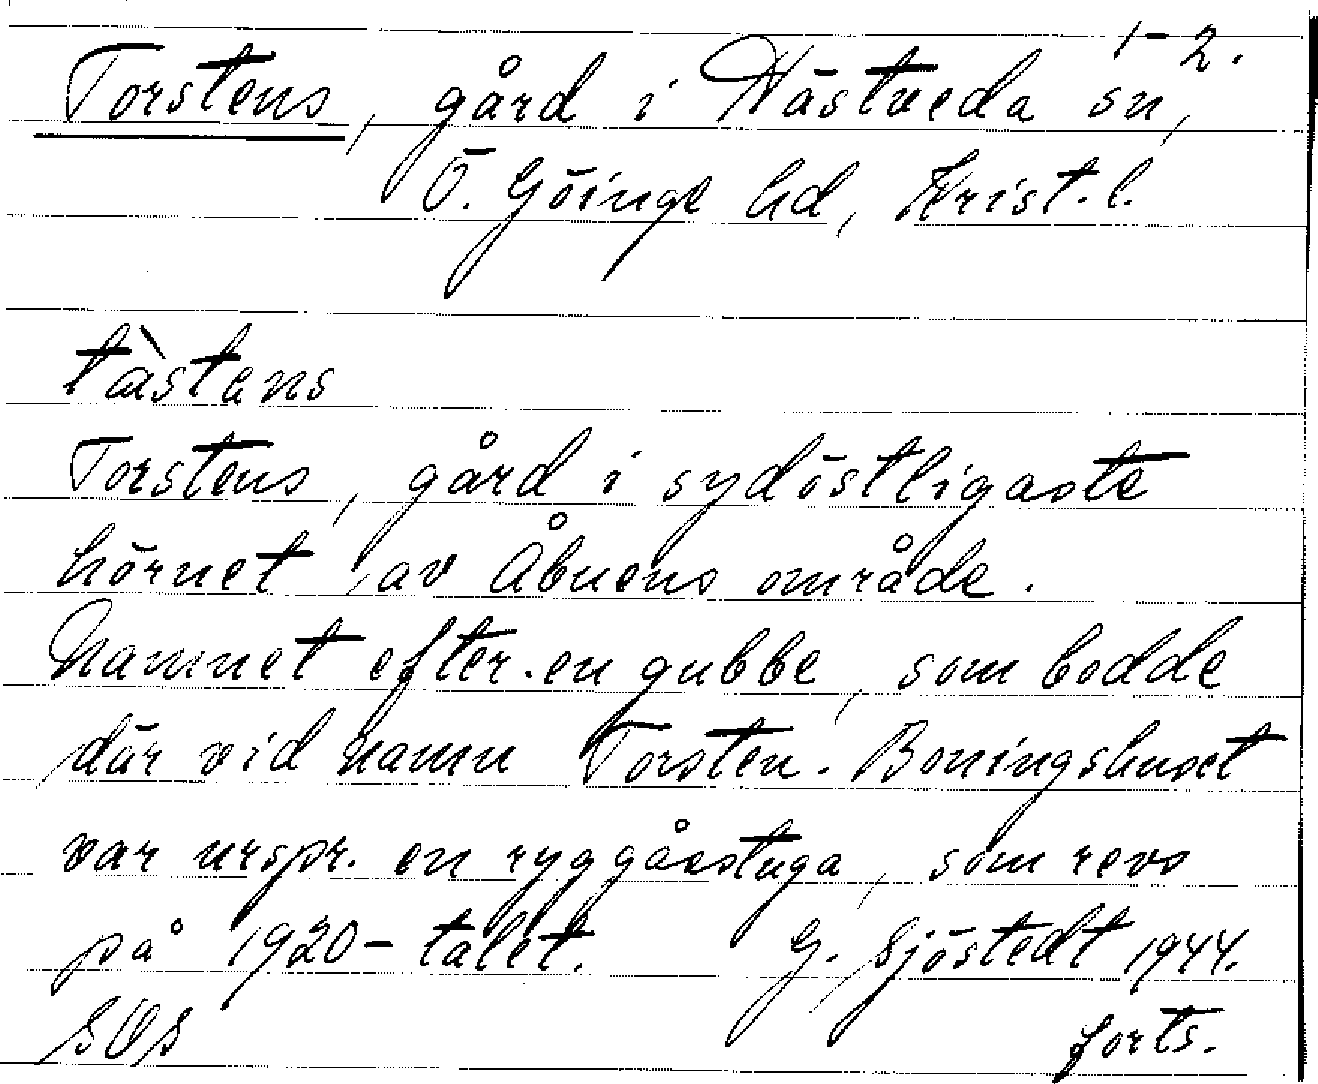 1-2.
Torstens, gård i Hästveda sn,
Ö. Göinge hd, Krist. l.
tàstens
Torstens, gård i sydöstligaste
hörnet, av Åbuens område.
Namnet efter en gubbe, som bodde
där vid namn Torsten. Boningshuset
var urspr. en ryggåsstuga, som revs
på 1920-talet. G. Sjöstedt 1944.
SOS forts.